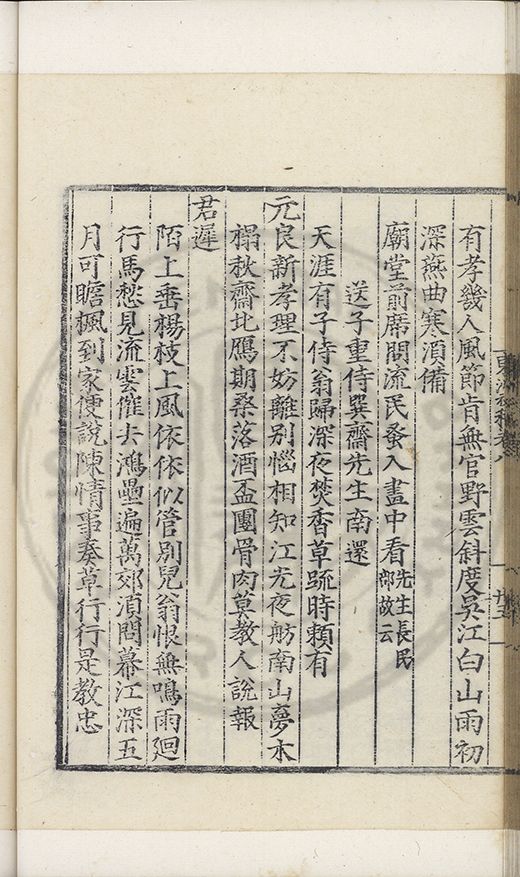 有孝幾人風節肯無官野雲斜度吳江白山雨初
深燕曲寒須備
廟堂前席問流民蚤入畫中看先生長民部故云
送子重侍巽齋先生南還
天涯有子侍翁歸深夜焚香草疏時賴有
元良新孝理不妨離別惱相知江光夜舫南山夢木
榻秋齋北鴈期桑落酒盃團骨肉莫教人說報
君遲
陌上垂楊枝上風依依似管別兒翁恨無鳴雨廻
行馬愁見流雲催去鴻壘遍萬郊須問幕江深五
月可瞻楓到家便說陳情事奏草行行是教忠